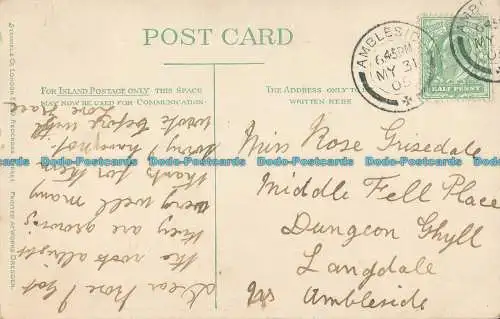 POST CARD
For Inland Postage only, this Space
may now be used for Communication
The Address only to be
written here
AMBLESIDE
6.45 PM
MY 31
HALF PENNY
Dear Rose I got
the roots alright
they are growing
very well many
thanks for them
Sorry I have not
wrote before with
Love
Miss Rose Grisedale
Middle Fell Place
Dungeon Ghyll
Langdale
Nrs Ambleside
Dodo-Postcards Dodo-Postcards Dodo-Postcards Dodo-Postcards Dodo-Postcards